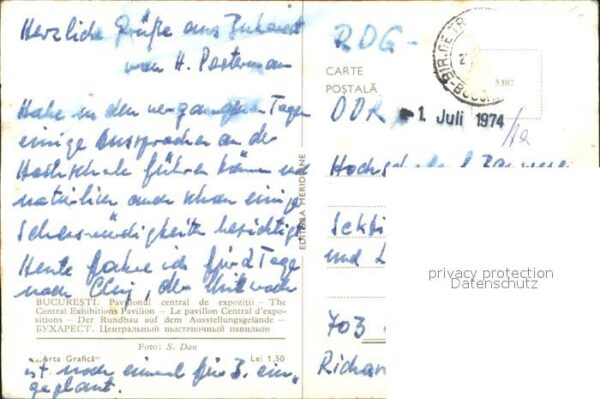 Herzliche Grüße aus Bukarest
von H. Posterman
Habe in den vergangenen Tagen
einige Aussprachen an der
Hochschule führen können und
natürlich auch schon einige
Sehenswürdigkeiten besichtigt
Heute fahre ich für 3 Tage
nach Cluj, der Mittwoch
BUCUREȘTI. Pavilionul central de expoziții – The
Central Exhibitions Pavilion – Le pavillon Central d'expo-
sitions – Der Rundbau auf dem Ausstellungsgelände –
БУХАРЕСТ. Центральный выстрвочный павильон
Foto: S. Dan
„Arta Grafică" Lei 1,50
ist noch einmal für B. ein-
geplant.
EDITURA MERIDIANE
RDG-
CARTE
POȘTALĂ
5387
DDR
1. Juli 1974
Hochschule f.
Sekti
und L
703
Richar
privacy protection
Datenschutz